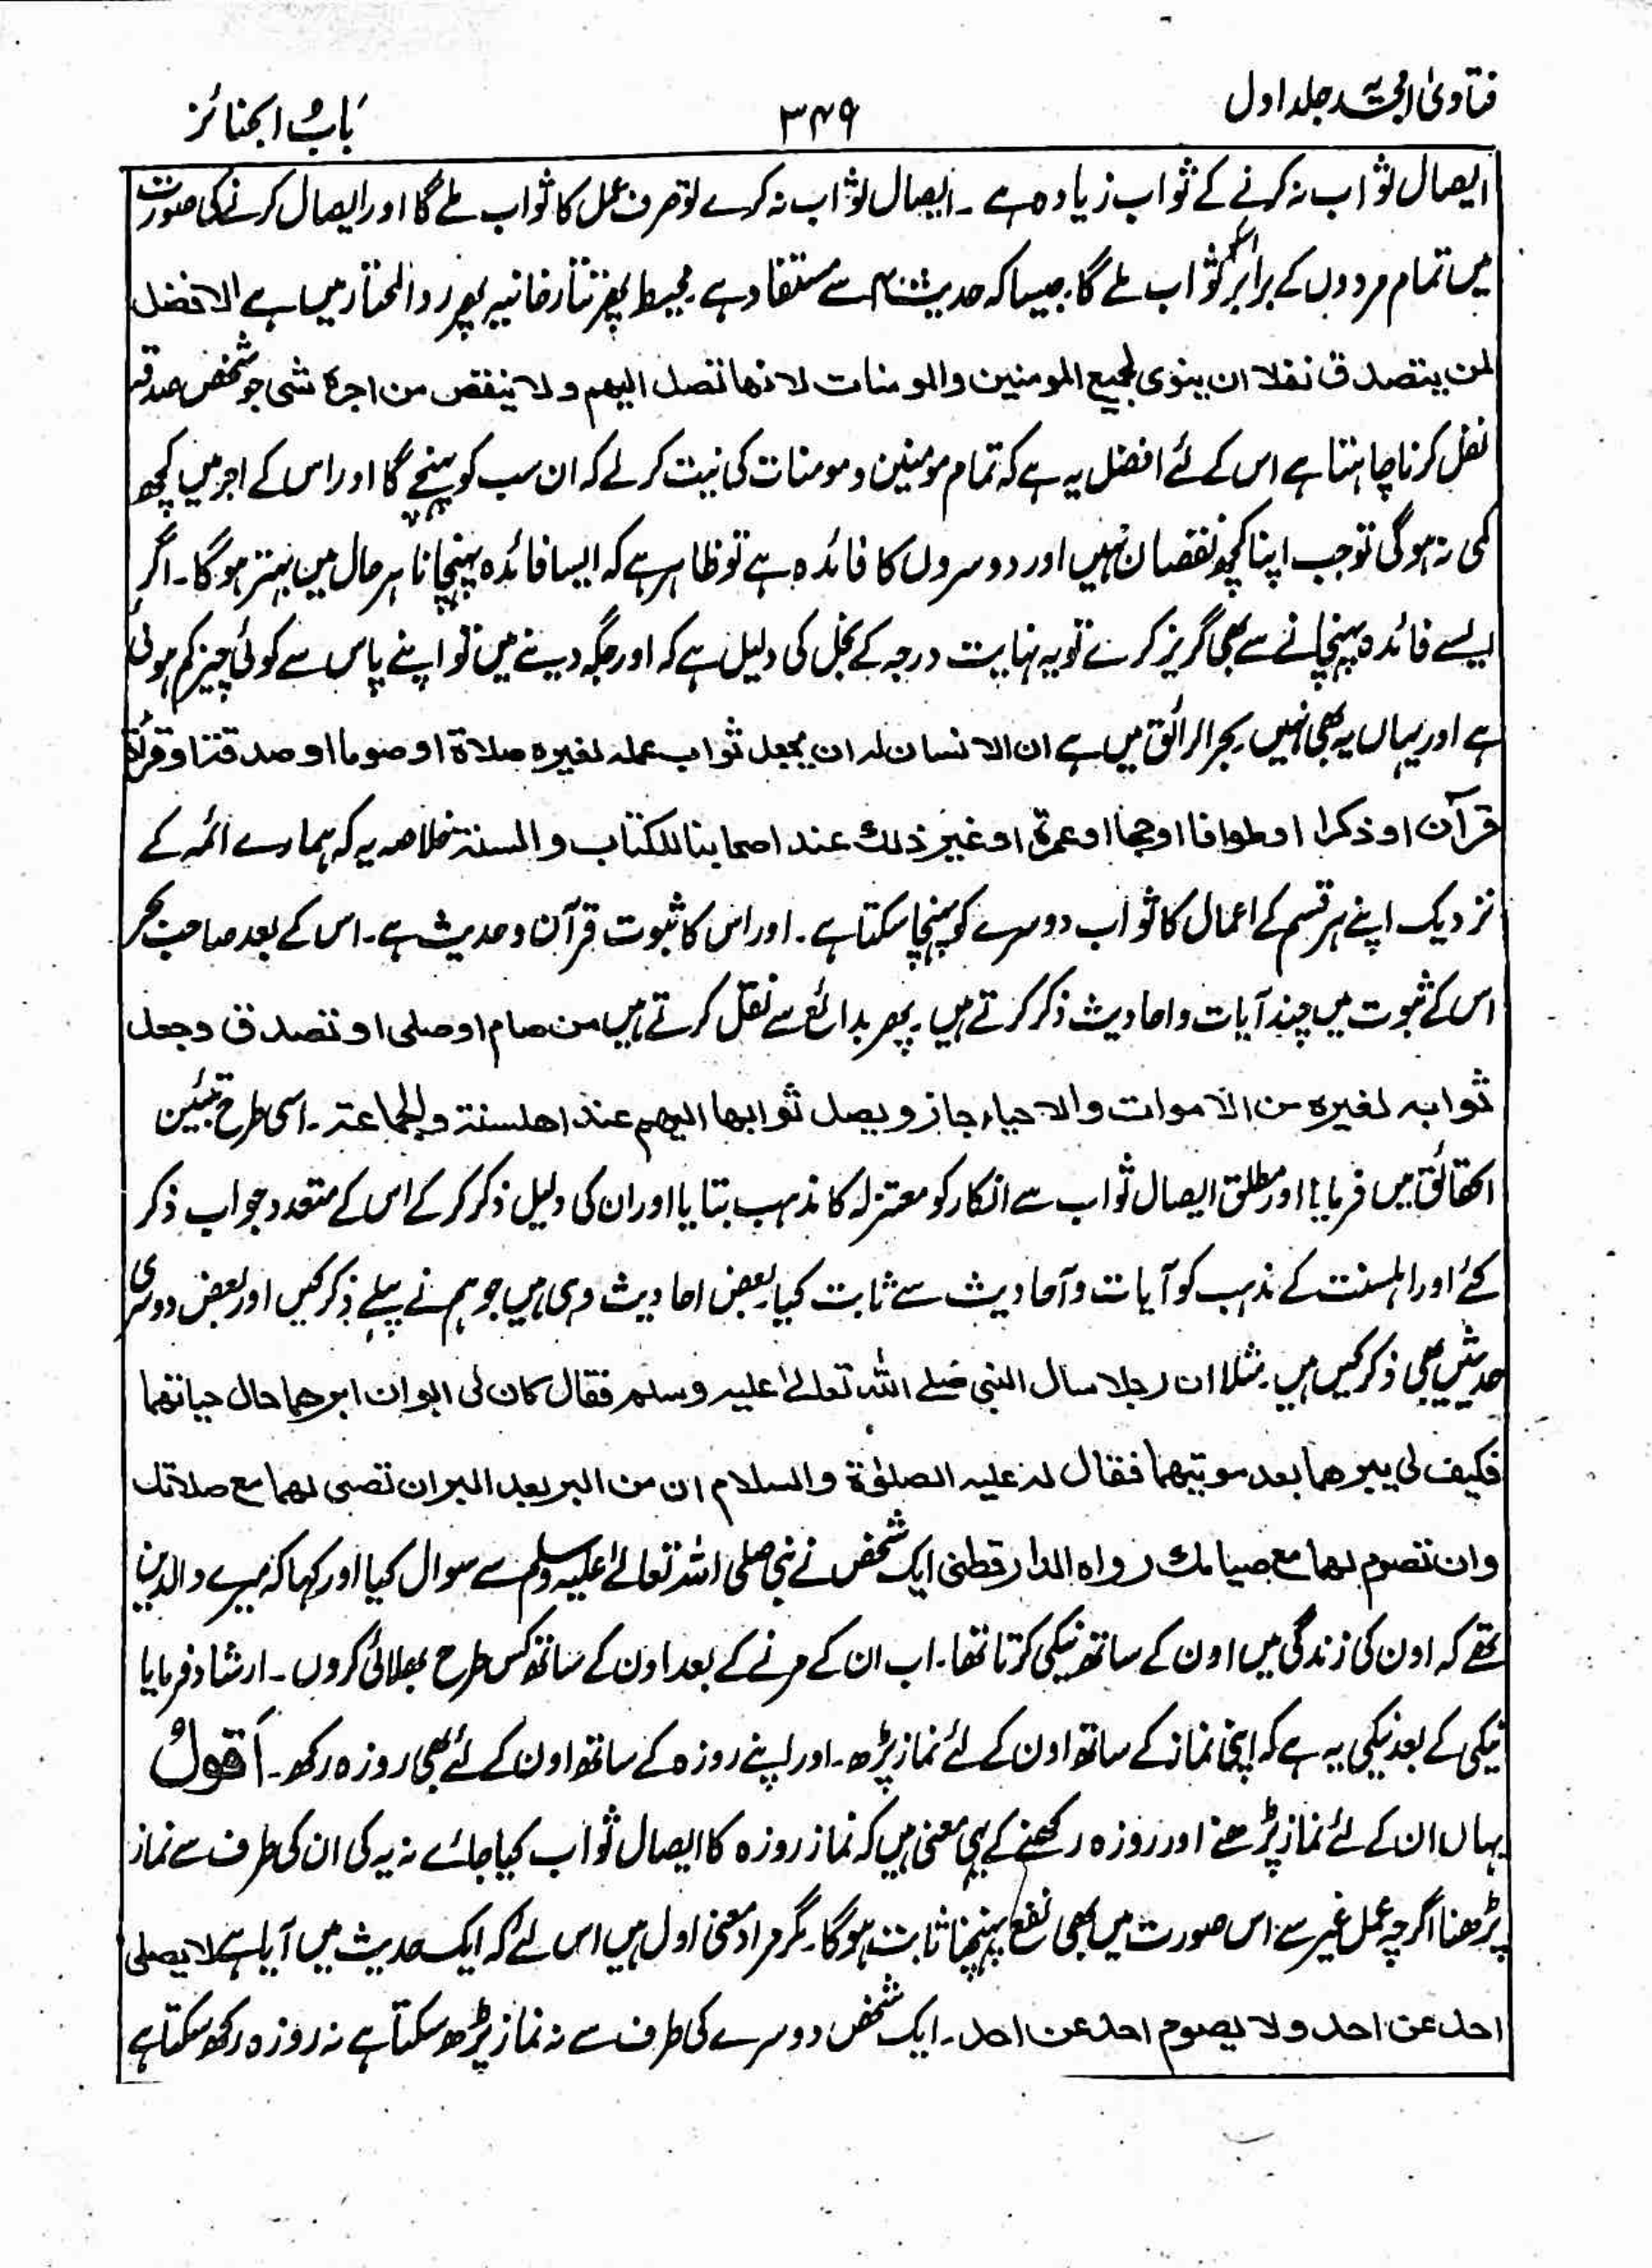 فتاویٰ امجدیہ جلد اول
۳۴۹
بَابُ الجنائز
ایصال ثواب نہ کرنے کے ثواب زیادہ ہے ۔ ایصال ثواب نہ کرے تو صرف عمل کا ثواب ملے گا اور ایصال کرنے کی صورت
میں تمام مردوں کے برابر اسکو ثواب ملے گا۔ جیسا کہ حدیث سے مستفاد ہے۔ محیط پھر تتارخانیہ پھر ردالمحتار میں ہے الافضل
لمن یتصدق نفلا ان ینوی لجمیع المومنین والمومنات لانھا تصل الیھم ولا ینقص من اجرہ شی جو شخص صدقہ
نفل کرنا چاہتا ہے اس کے لئے افضل یہ ہے کہ تمام مومنین و مومنات کی نیت کرلے کہ ان سب کو پہنچے گا اور اس کے اجر میں کچھ
کمی نہ ہوگی تو جب اپنا کچھ نقصان نہیں اور دوسروں کا فائدہ ہے تو ظاہر ہے کہ ایسا فائدہ پہنچانا ہر حال میں بہتر ہوگا۔ اگر
ایسے فائدہ پہنچانے سے بھی گریز کرے تو یہ نہایت درجہ کے بخل کی دلیل ہے کہ اور جگہ دینے میں تو اپنے پاس سے کوئی چیز کم ہوتی
ہے اور یہاں یہ بھی نہیں۔ بحر الرائق میں ہے ان الانسان لہ ان یجعل ثواب عملہ لغیرہ صلاۃ او صوما او صدقۃ او قرأۃ
قرآن او ذکرا او طوافا او حجا او عمرۃ او غیر ذلک عند اصحابنا للکتاب والسنۃ خلاصہ یہ کہ ہمارے ائمہ کے
نزدیک اپنے ہر قسم کے اعمال کا ثواب دوسرے کو پہنچا سکتا ہے۔ اور اس کا ثبوت قرآن و حدیث ہے۔ اس کے بعد صاحب بحر
اس کے ثبوت میں چند آیات و احادیث ذکر کرتے ہیں۔ پھر بدائع سے نقل کرتے ہیں من صام او صلی او تصدق وجعل
ثوابہ لغیرہ من الاموات والاحیاء جاز ویصل ثوابھا الیھم عند اھلسنۃ والجماعۃ ۔ اسی طرح تبئین
الحقائق میں فرمایا اور مطلق ایصال ثواب سے انکار کو معتزلہ کا مذہب بتایا اور ان کی دلیل ذکر کرکے اس کے متعدد جواب ذکر
کئے اور اہلسنت کے مذہب کو آیات و آحادیث سے ثابت کیا۔ بعض احادیث وہی ہیں جو ہم نے پہلے ذکر کیں اور بعض دوسری
حدیثیں بھی ذکر کیں ہیں۔ مثلا ان رجلا سال النبی صلے اللہ تعالےٰ علیہ وسلم فقال کان لی ابوان ابرھما حال حیاتھما
فکیف لی ببرھما بعد موتہما فقال لہ علیہ الصلوٰۃ والسلام ان من البر بعد البر ان تصلی لھما مع صلاتک
وان تصوم لھما مع صیامک رواہ الدارقطنی ایک شخص نے نبی صلی اللہ تعالےٰ علیہ وسلم سے سوال کیا اور کہا کہ میرے والدین
تھے کہ اون کی زندگی میں اون کے ساتھ نیکی کرتا تھا۔ اب ان کے مرنے کے بعد اون کے ساتھ کس طرح بھلائی کروں ۔ ارشاد فرمایا
نیکی کے بعد نیکی یہ ہے کہ اپنی نماز کے ساتھ اون کے لئے نماز پڑھ ۔ اور اپنے روزہ کے ساتھ اون کے لئے بھی روزہ رکھ ۔ اَقولُ
یہاں ان کے لئے نماز پڑھنے اور روزہ رکھنے کے یہی معنی ہیں کہ نماز روزہ کا ایصال ثواب کیا جائے نہ یہ کی ان کی طرف سے نماز
پڑھنا اگرچہ عمل غیر سے اس صورت میں بھی نفع پہنچنا ثابت ہوگا۔ مگر مراد معنی اول ہیں اس لئے کہ ایک حدیث میں آیا ہے لا یصلی
احد عن احد ولا یصوم احد عن احد ۔ ایک شخص دوسرے کی طرف سے نہ نماز پڑھ سکتا ہے نہ روزہ رکھ سکتا ہے